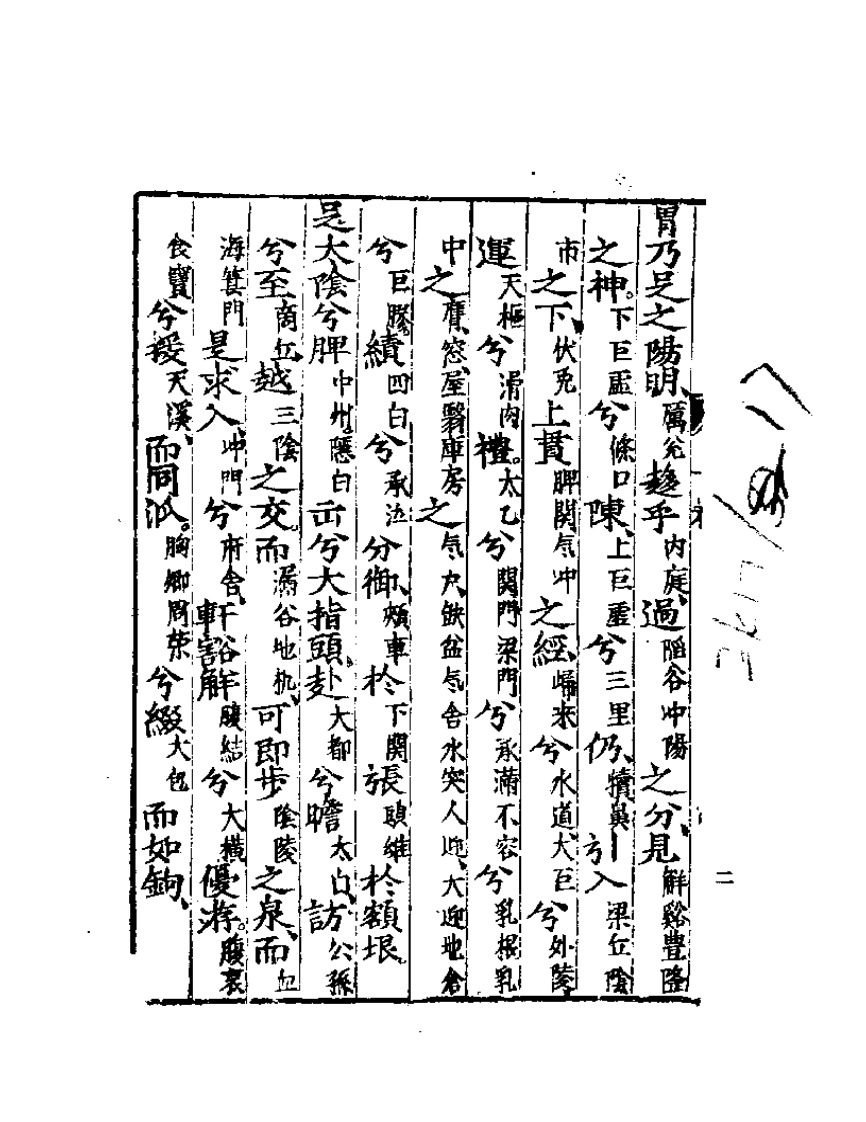 胃乃足之陽明、厲兊趍乎内庭、過陷谷冲陽之分、見解谿豊隆
之神。下巨虛兮條口陳、上巨虛兮三里仍、犢鼻引入梁丘陰
市之下、伏兎上貫髀関气冲之經、歸来兮水道、大巨兮外陵
運天樞兮滑肉禮。太乙兮関門梁門兮承滿不容兮乳根乳
中之膺窓、屋翳庫房之气户、缺盆气舍水突人迎、大迎地倉
兮巨膠、續四白兮承泣分御、頰車於下関張頭維於額垠。
足大陰兮脾中州。隱白出兮大指頭、赴大都兮瞻太白、訪公孫
兮至商丘、越三陰之交。而漏谷地机、可即步陰陵之泉、而血
海箕門是求入、冲門兮府舍、軒豁解腹結兮大横優游。腹哀
食竇兮援天溪、而同泒。胸鄉周荣兮綴大包而如鉤、
二